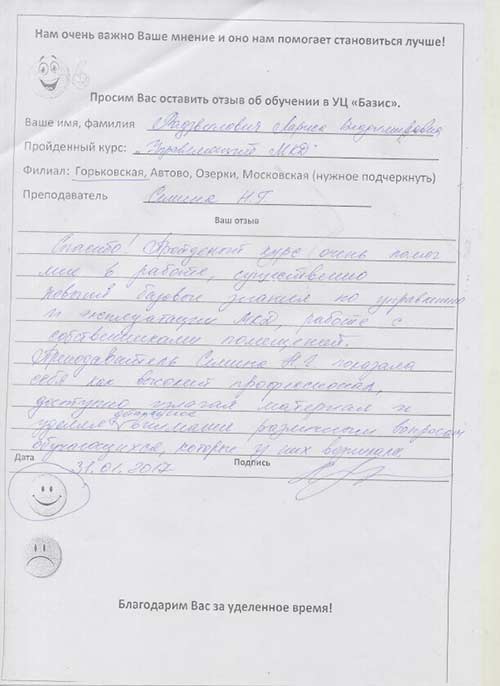 Нам очень важно Ваше мнение и оно нам помогает становиться лучше!
Просим Вас оставить отзыв об обучении в УЦ «Базис».
Ваше имя, фамилия Радзвилович Лариса Владимировна
Пройденный курс: „Управляющий МКД"
Филиал: Горьковская, Автово, Озерки, Московская (нужное подчеркнуть)
Преподаватель Семина Н.Г.
Ваш отзыв
Спасибо! Пройденный курс очень помог
мне в работе, существенно
повысил базовые знания по управлению
и эксплуатации МКД, работе с
собственниками помещений.
Преподаватель Семина Н.Г. показала
себя как высокий профессионал,
доступно излагая материал и
уделяя должное внимание различным вопросам
обучающихся, которые у них возникали
Дата 31.01.2017 Подпись
Благодарим Вас за уделенное время!